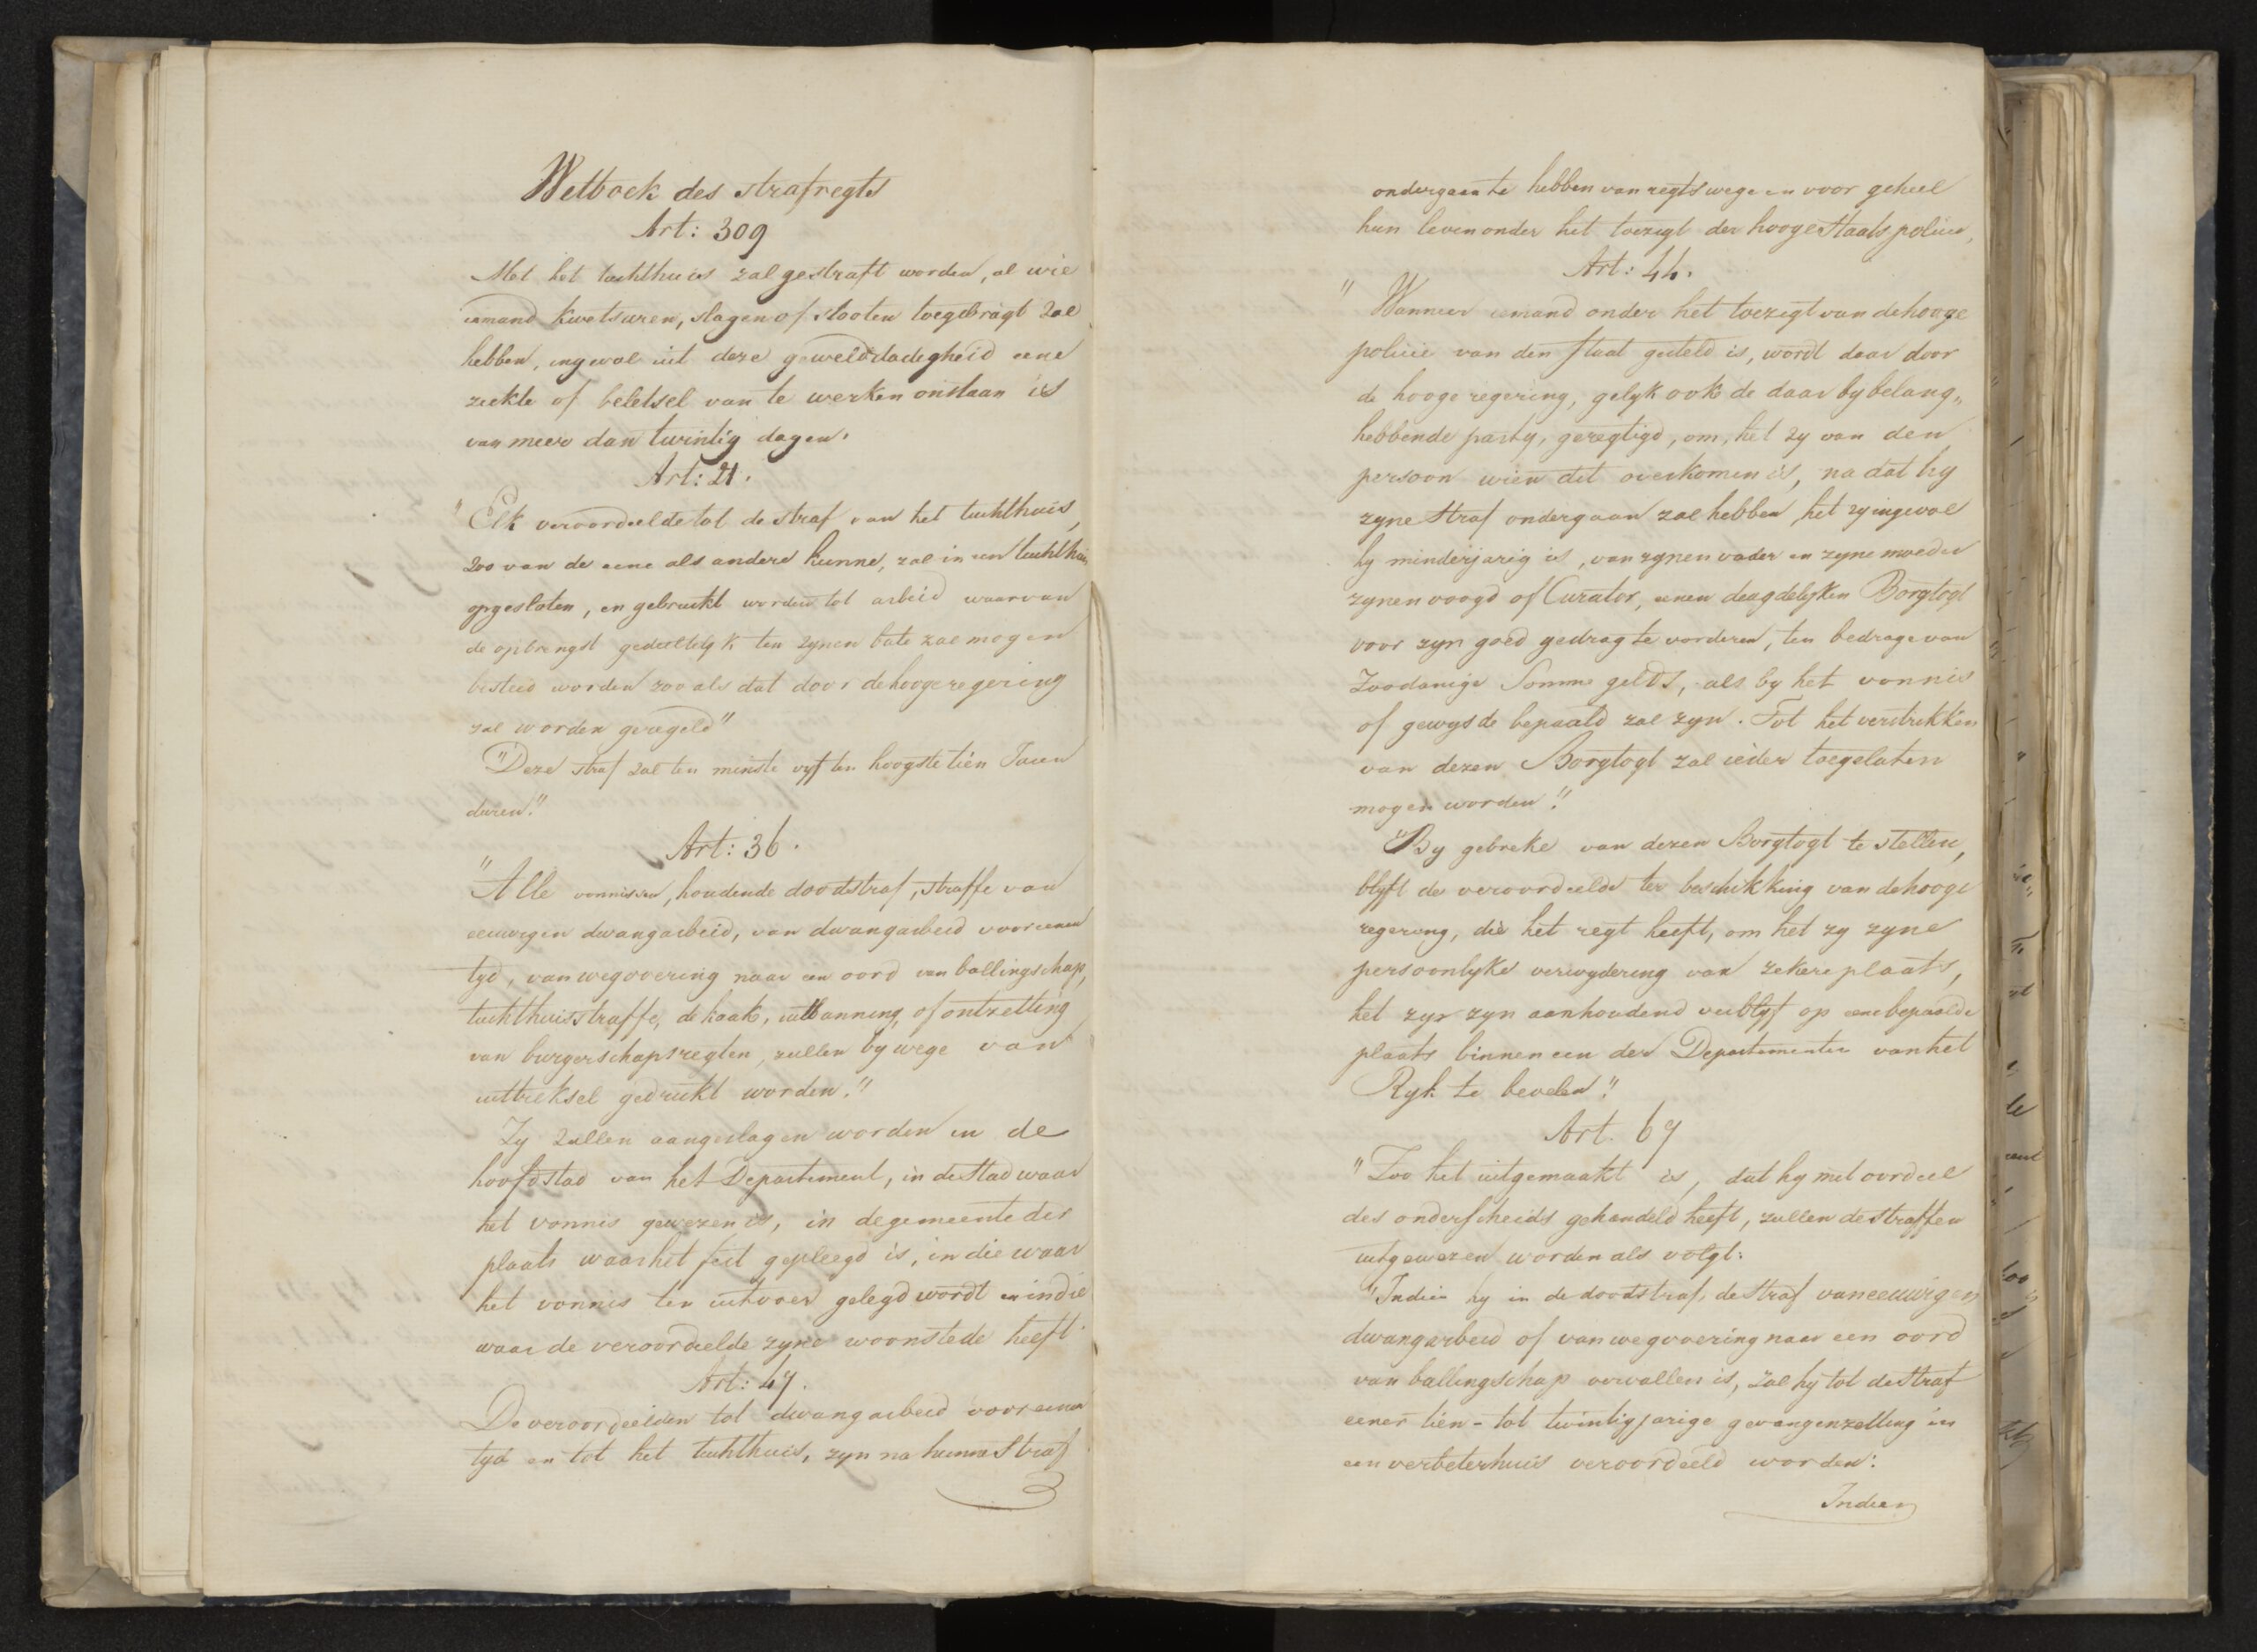 Wetboek des strafregts
Art: 309
Met het tuchthuis zal gestraft worden, al wie
iemand kwetsuren, slagen of stooten toegebragt zal
hebben, ingeval uit deze gewelddadigheid eene
ziekte of beletsel van te werken onstaan is
van meer dan twintig dagen.
Art: 21.
"Elk veroordeelde tot de straf van het tuchthuis,
zoo van de eene als andere kunne, zal in een tuchthuis
opgesloten, en gebruikt worden tot arbeid waarvan
de opbrengst gedeeltelyk ten zynen bate zal mogen
besteed worden zoo als dat door de hooge regering
zal worden geregeld"
"Deze straf zal ten minste vyf ten hoogste tien Jaren
duren."
Art: 36.
"Alle vonnissen, houdende doodstraf, straffe van
eeuwigen dwangarbeid, van dwangarbeid voor eenen
tyd, van wegvoering naar een oord van ballingschap,
tuchthuisstraffe, de kaak, uitbanning, of ontzetting
van burgerschapsregten, zullen by wege van
uittreksel gedrukt worden."
Zy zullen aangeslagen worden in de
hoofdstad van het Departement, in de stad waar
het vonnis gewezen is, in de gemeente der
plaats waar het feit gepleegd is, in die waar
het vonnis ter uitvoer gelegd wordt en in die
waar de veroordeelde zyne woonstede heeft.
Art: 47.
De veroordeelden tot dwangarbeid voor eenen
tyd en tot het tuchthuis, zyn na hunne Straf
ondergaan te hebben van regtswege en voor geheel
hun leven onder het toezigt der hooge Staats policie,
Art: 44.
" Wanneer iemand onder het toezigt van de hooge
policie van den staat gesteld is, wordt daar door
de hooge regering, gelyk ook de daar by belang„
hebbende party, geregtigd, om, het zy van den
persoon wien dit overkomen is, na dat hy
zyne Straf ondergaan zal hebben, het zy ingeval
hy minderjarig is, van zynen vader en zyne moeder
zynen voogd of Curator, eenen deugdelyken Borgtogt
voor zyn goed gedrag te vorderen, ten bedrage van
Zoodanige Somme gelds, als by het vonnis
of gewysde bepaald zal zyn. Tot het verstrekken
van dezen Borgtogt zal ieder toegelaten
mogen worden."
"By gebreke van dezen Borgtogt te stellen,
blyft de veroordeelde ter beschikking van de hooge
regering, die het regt heeft, om het zy zyne
persoonlyke verwydering van zekere plaats,
het zy zyn aanhoudend verblyf op eene bepaalde
plaats binnen een der Departementen van het
Ryk te bevelen."
Art. 67
"Zoo het uitgemaakt is, dat hy met oordeel
des onderscheids gehandeld heeft, zullen de straffen
uitgewezen worden als volgt:
"Indien hy in de doodstraf, de straf van eeuwigen
dwangarbeid of van wegvoering naar een oord
van ballingschap vervallen is, zal hy tot de Straf
eener tien-tot twintigjarige gevangenzetting in
een verbeterhuis veroordeeld worden.
Indien